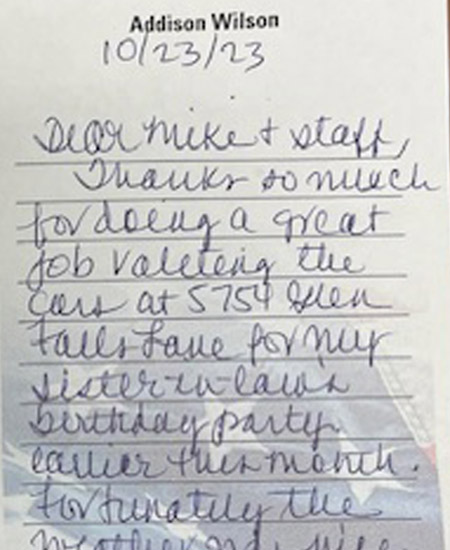 Addison Wilson
10/23/23
Dear Mike + staff,
Thanks so much
for doing a great
job valeting the
cars at 5754 Glen
Falls Lane for my
sister-in-laws
birthday party
earlier this month.
Fortunately the
weather